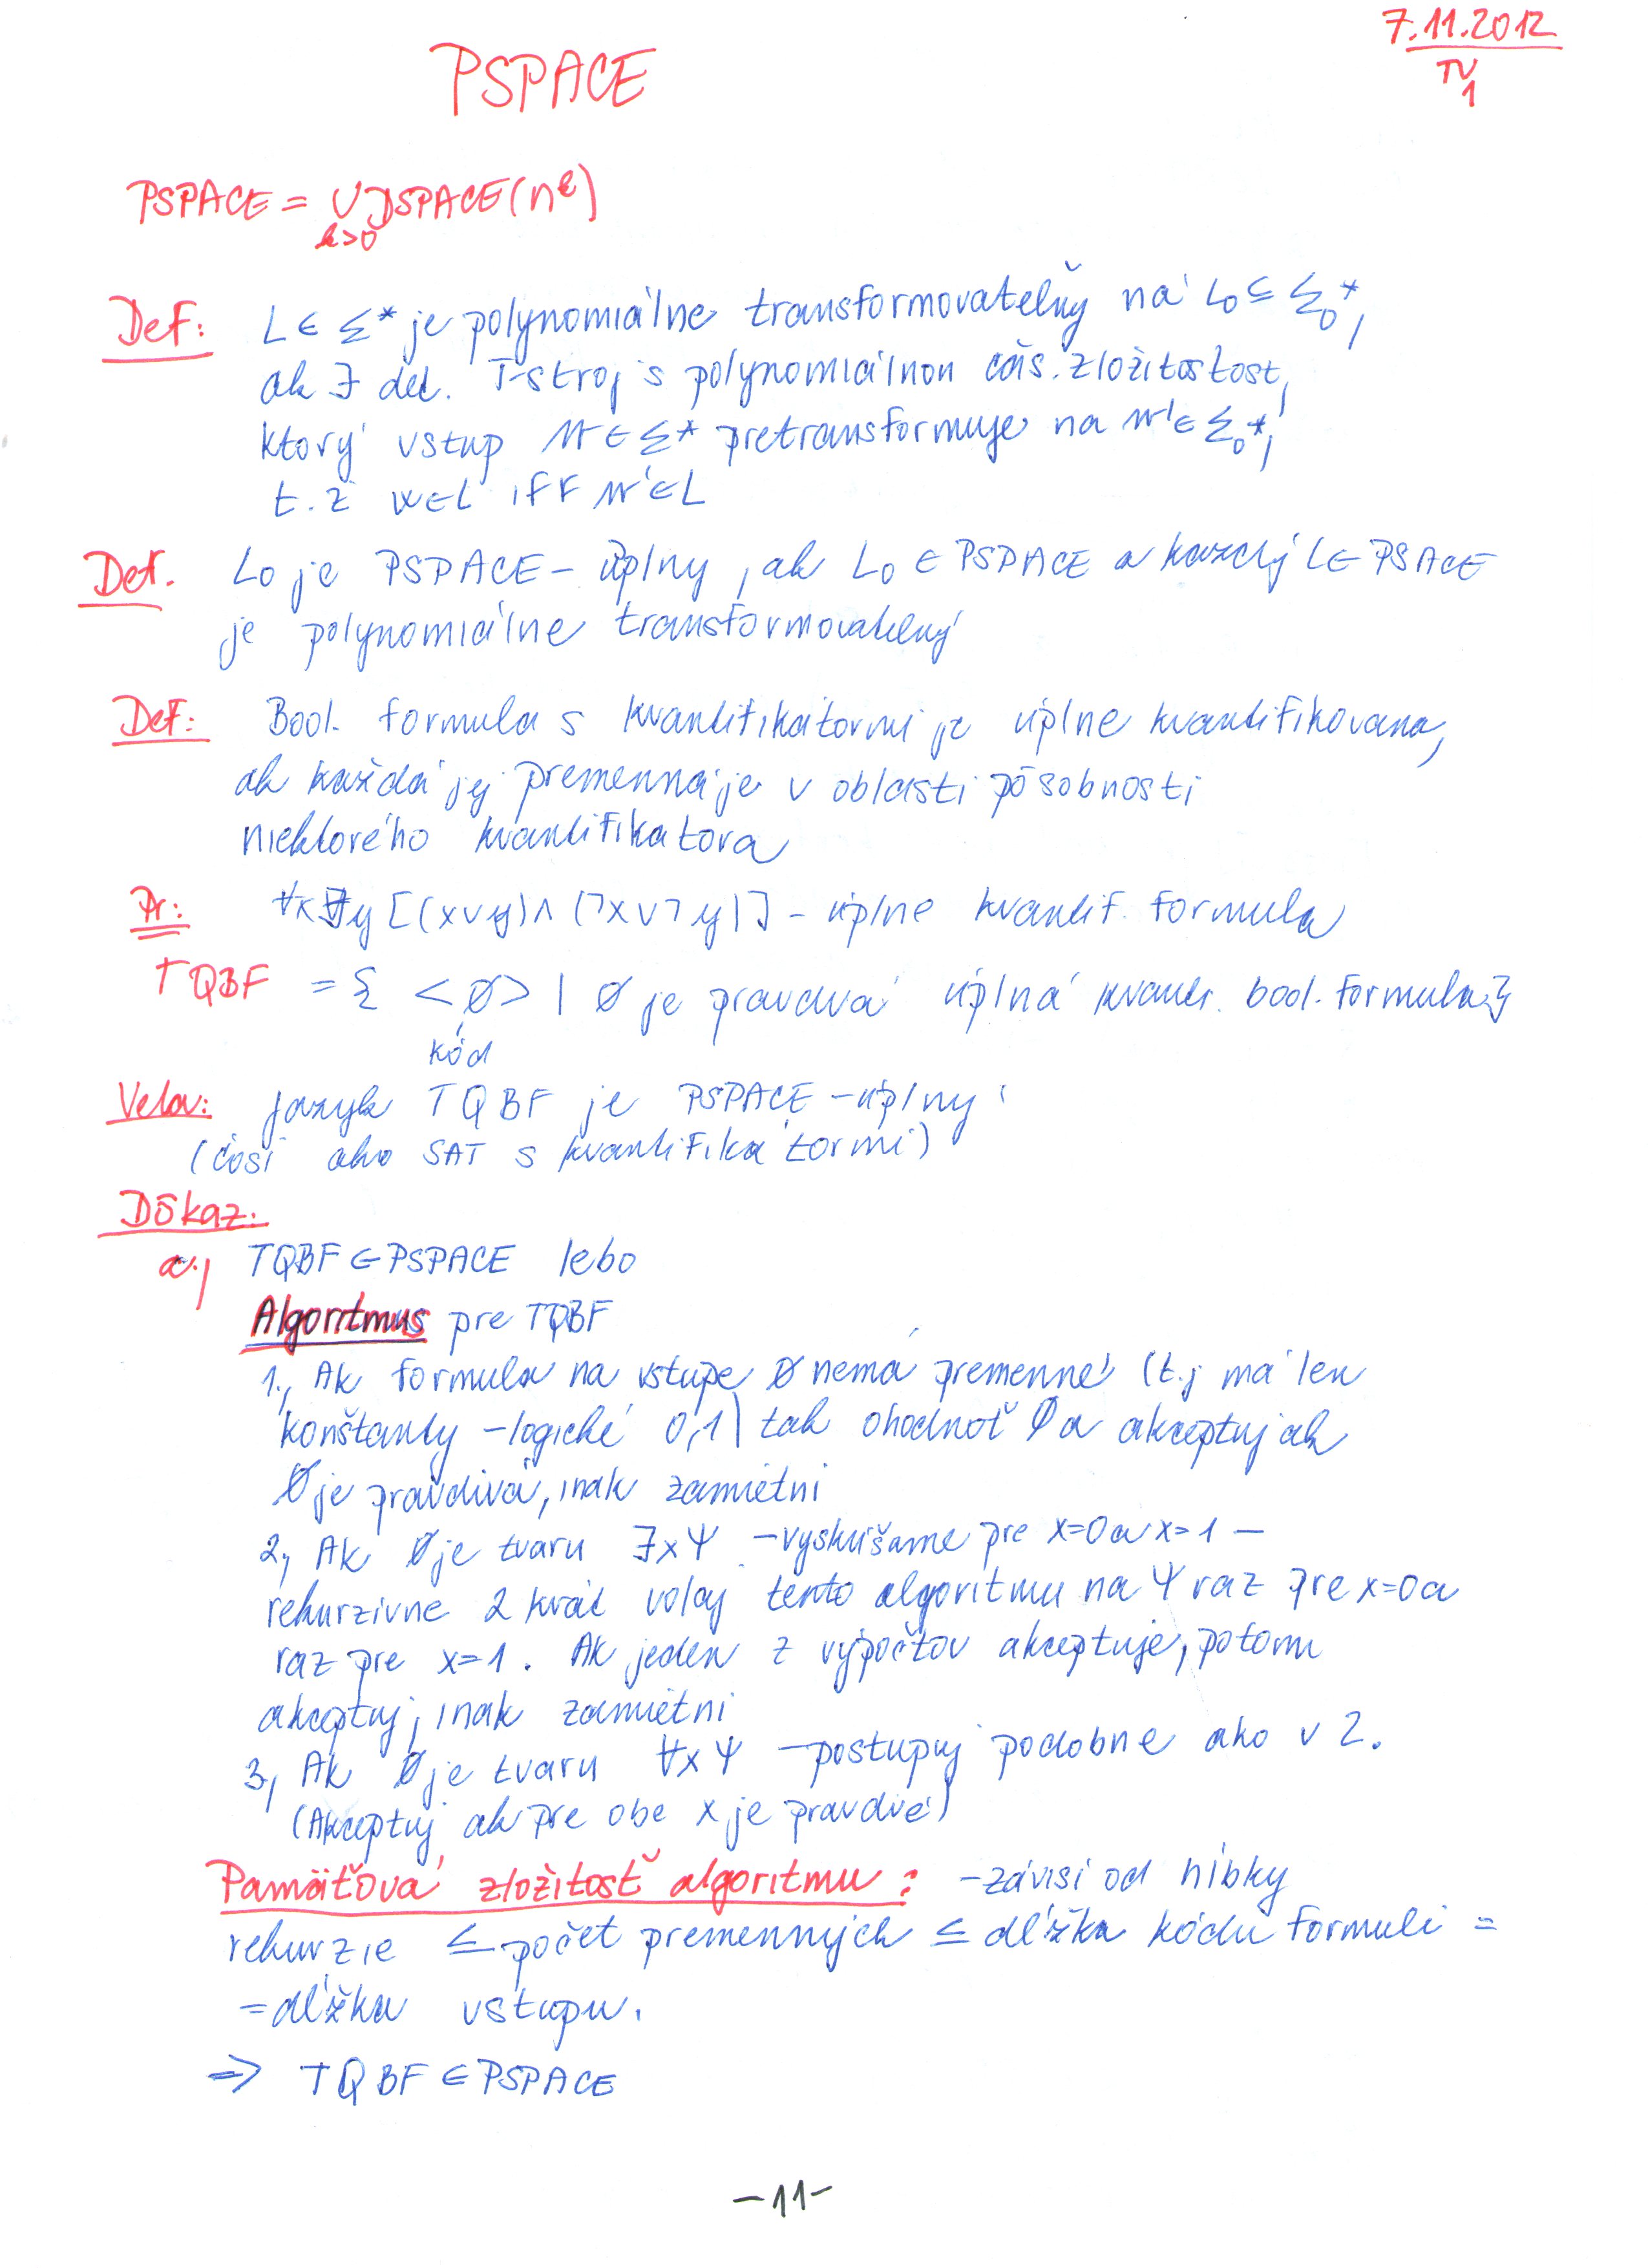 7.11.2012
TV
1
PSPACE
PSPACE = ∪ DSPACE(n^k)
k>0
Def: L ∈ Σ* je polynomiálne transformovateľný na L₀ ⊆ Σ₀*,
ak ∃ det. T-stroj s polynomiálnou čas. zložitostost,
ktorý vstup w ∈ Σ* pretransformuje na w' ∈ Σ₀*,
t.ž w∈L iff w'∈L
Def. L₀ je PSPACE - úplny, ak L₀ ∈ PSPACE a každý L∈ PSACE
je polynomiálne transformovatelný
Def: Bool. formula s kvantifikátormi je úplne kvantifikovana,
ak každá jej premenná je v oblasti pôsobnosti
niektorého kvantifikatora
Pr: ∀x∃y [(x∨y)∧(¬x∨¬y)] - úplne kvantif. formula
TQBF = { <Ø> | Ø je pravdivá úplná kvant. bool. formula}
kód
Veta: jazyk TQBF je PSPACE - úplný
(čosi ako SAT s kvantifikátormi)
Dôkaz:
a.) TQBF ∈ PSPACE lebo
Algoritmus pre TQBF
1., Ak formula na vstupe Ø nemá premenné (t.j má len
konštanty - logické 0,1) tak ohodnoť Ø a akceptuj ak
Ø je pravdivá, inak zamietni
2, Ak Ø je tvaru ∃xΨ - vyskúšame pre x=0 a x=1 -
rekurzívne 2 krát volaj tento algoritmu na Ψ raz pre x=0 a
raz pre x=1. Ak jeden z výpočtov akceptuje, potom
akceptuj, inak zamietni
3, Ak Ø je tvaru ∀xΨ - postupuj podobne ako v 2.
(Akceptuj ak pre obe x je pravdivé)
Pamäťová zložitosť algoritmu: - závisí od hĺbky
rekurzie ≤ počet premenných ≤ dĺžka kódu formuli =
= dĺžka vstupu.
⇒ TQBF ∈ PSPACE
-11-